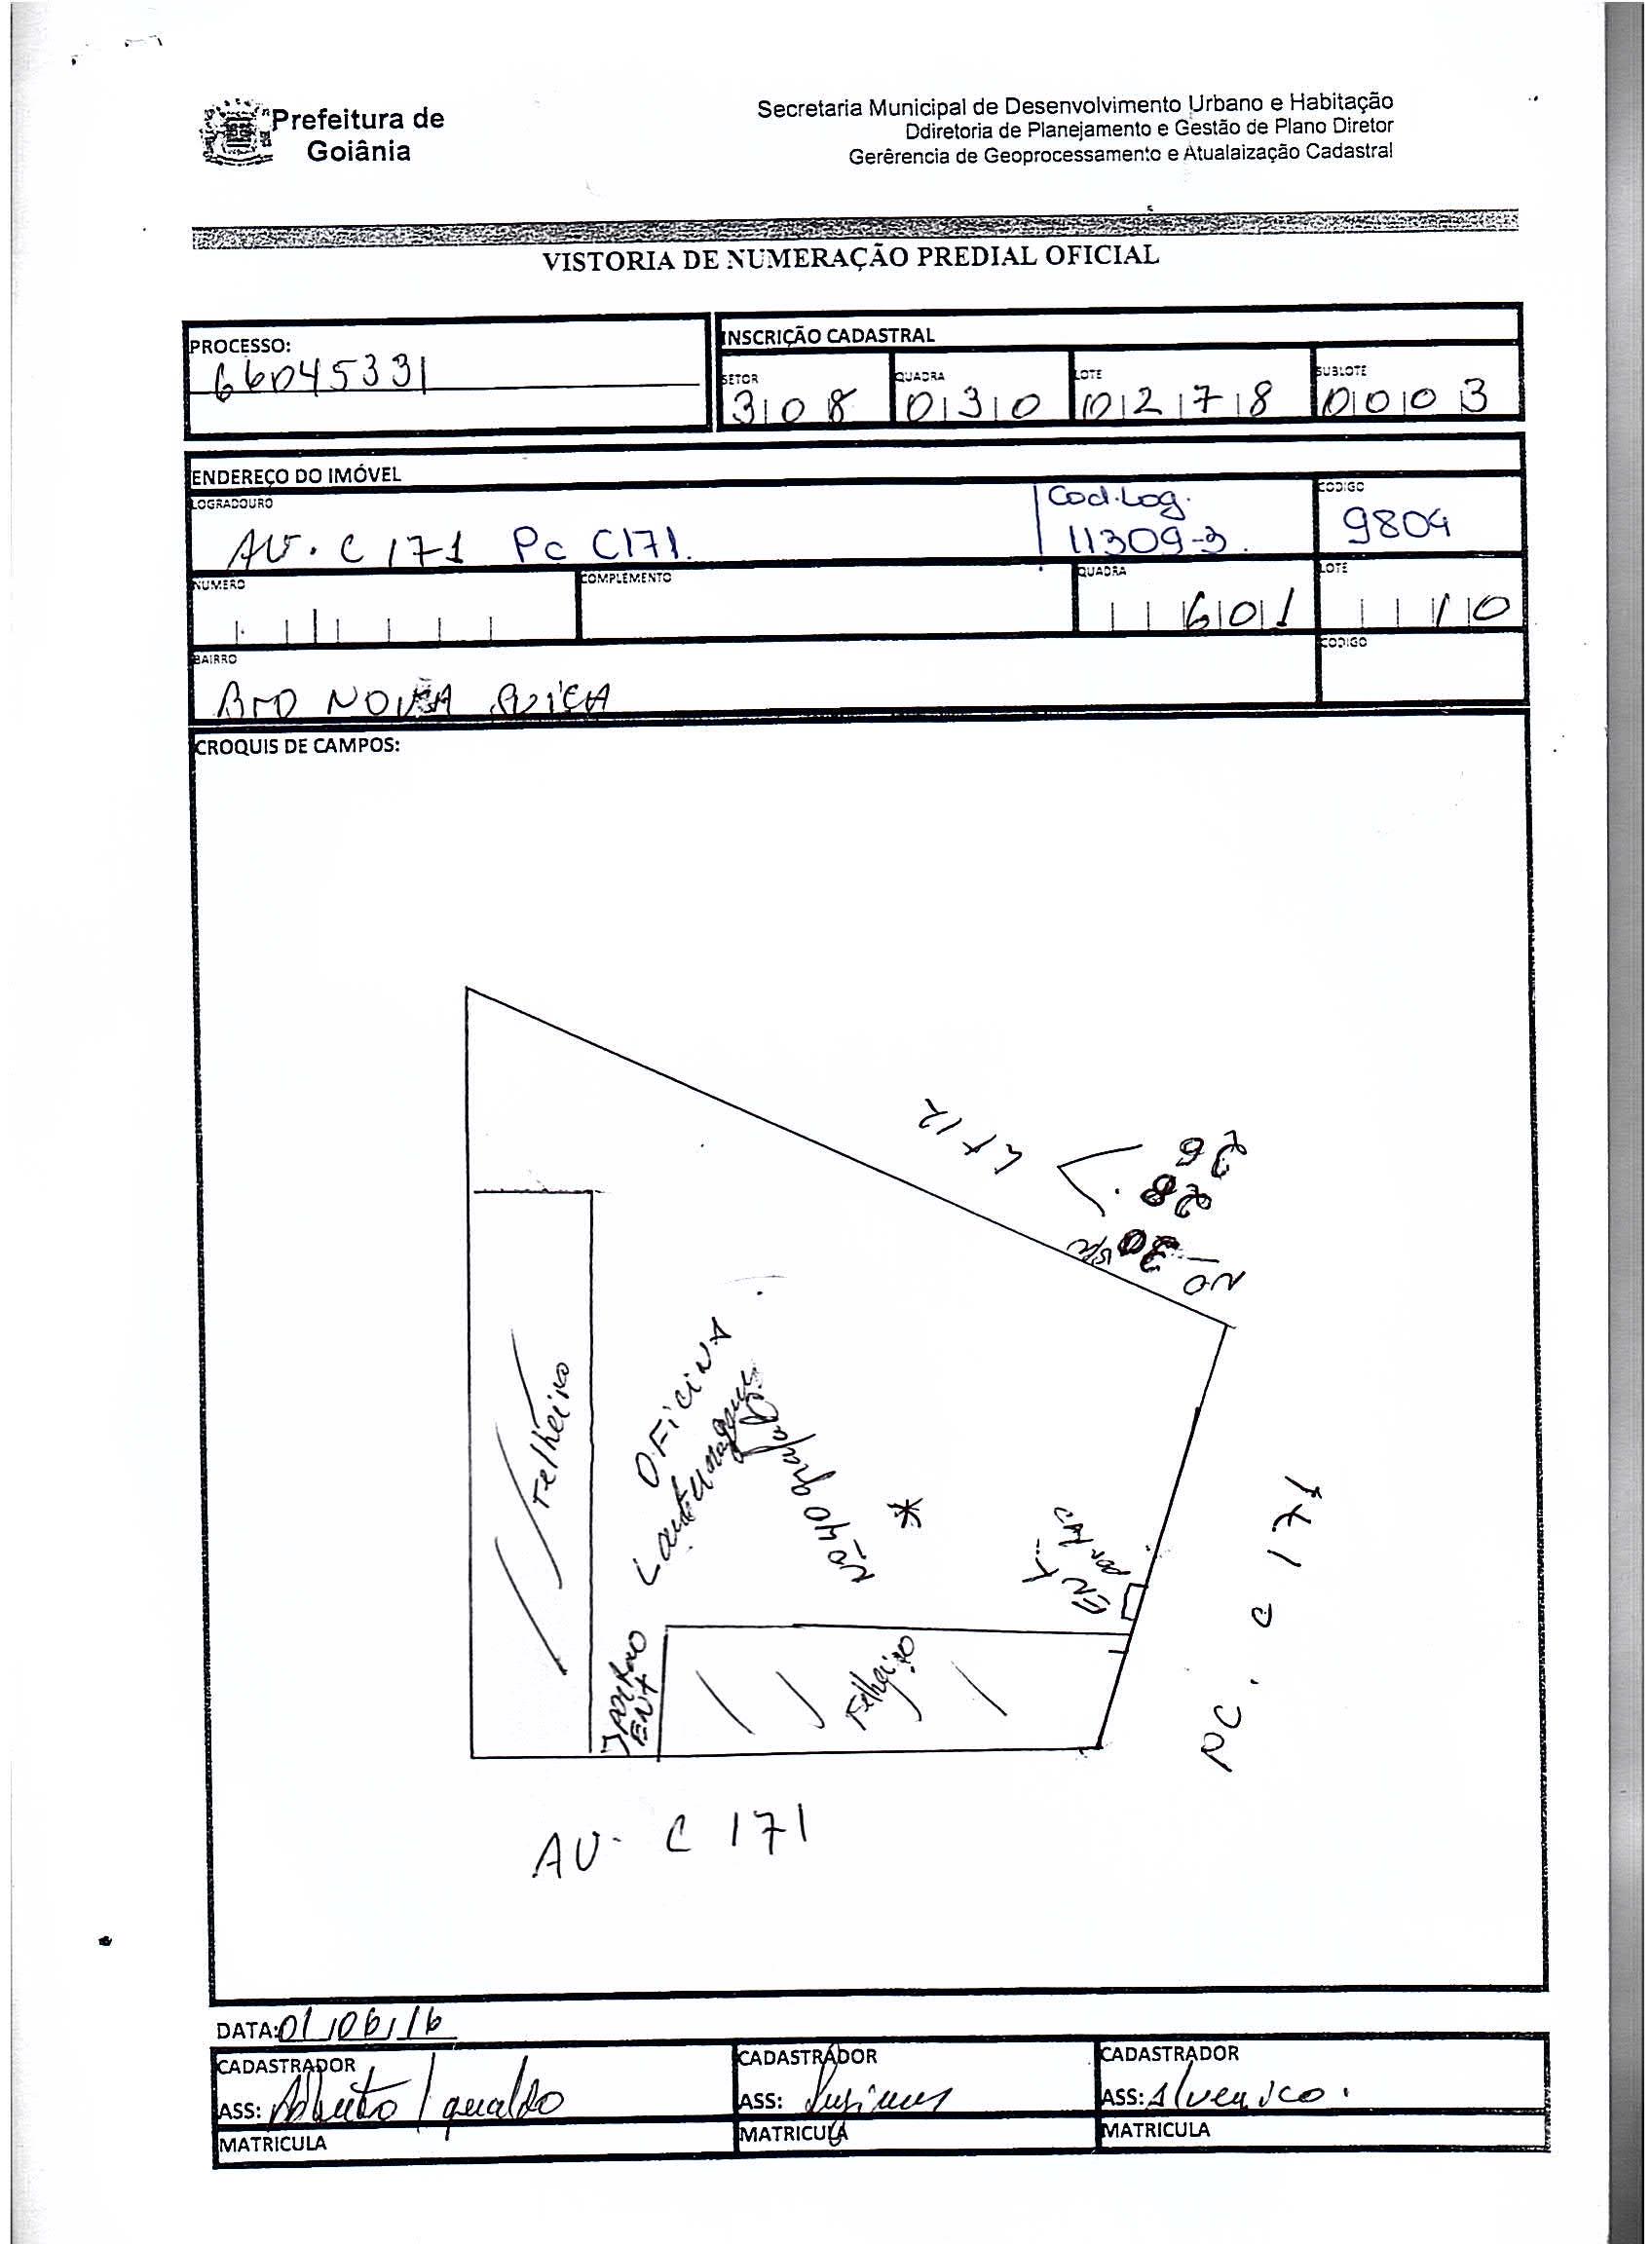 Prefeitura de
Goiânia
Secretaria Municipal de Desenvolvimento Urbano e Habitação
Ddiretoria de Planejamento e Gestão de Plano Diretor
Gerêrencia de Geoprocessamento e Atualaização Cadastral
VISTORIA DE NUMERAÇÃO PREDIAL OFICIAL
PROCESSO:
66045331
INSCRIÇÃO CADASTRAL
SETOR QUADRA LOTE SUBLOTE
308 030 0278 0003
ENDEREÇO DO IMÓVEL
LOGRADOURO
AV. C 171 Pc C171.
Cod.Log.
11309-3.
CODIGO
9804
NUMERO
COMPLEMENTO
QUADRA
601
LOTE
10
BAIRRO
NOVA SUÍÇA
CODIGO
CROQUIS DE CAMPOS:
LT 12
26
28
30
Nº
Telheiro
OFICINA
Lanternagem
Nº 40 grafado
*
ENT.
PORTÃO
ENT
Telheiro
PC. C 171
AV. C 171
DATA: 01/06/16
CADASTRADOR
ASS: Roberto / Geraldo
MATRICULA
CADASTRADOR
ASS:
MATRICULA
CADASTRADOR
ASS:
MATRICULA